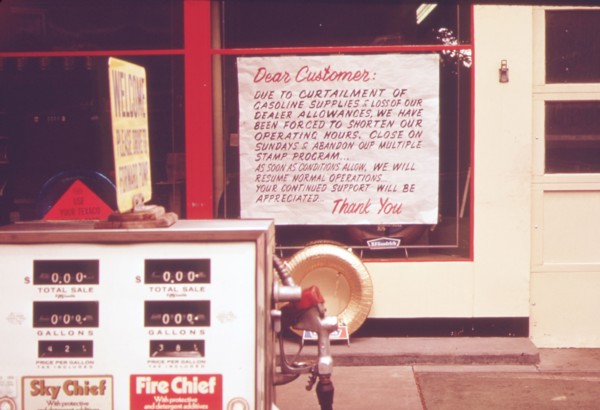 Dear Customer:
DUE TO CURTAILMENT OF
GASOLINE SUPPLIES & LOSS OF OUR
DEALER ALLOWANCES, WE HAVE
BEEN FORCED TO SHORTEN OUR
OPERATING HOURS, CLOSE ON
SUNDAYS & ABANDON OUR MULTIPLE
STAMP PROGRAM...
AS SOON AS CONDITIONS ALLOW, WE WILL
RESUME NORMAL OPERATIONS.
YOUR CONTINUED SUPPORT WILL BE
APPRECIATED.
Thank You
WELCOME
$ 0.00
TOTAL SALE
$ 0.00
TOTAL SALE
GALLONS
GALLONS
PRICE PER GALLON
TAX INCLUDED
PRICE PER GALLON
TAX INCLUDED
Sky Chief
With protective
Fire Chief
With protective
and detergent additives